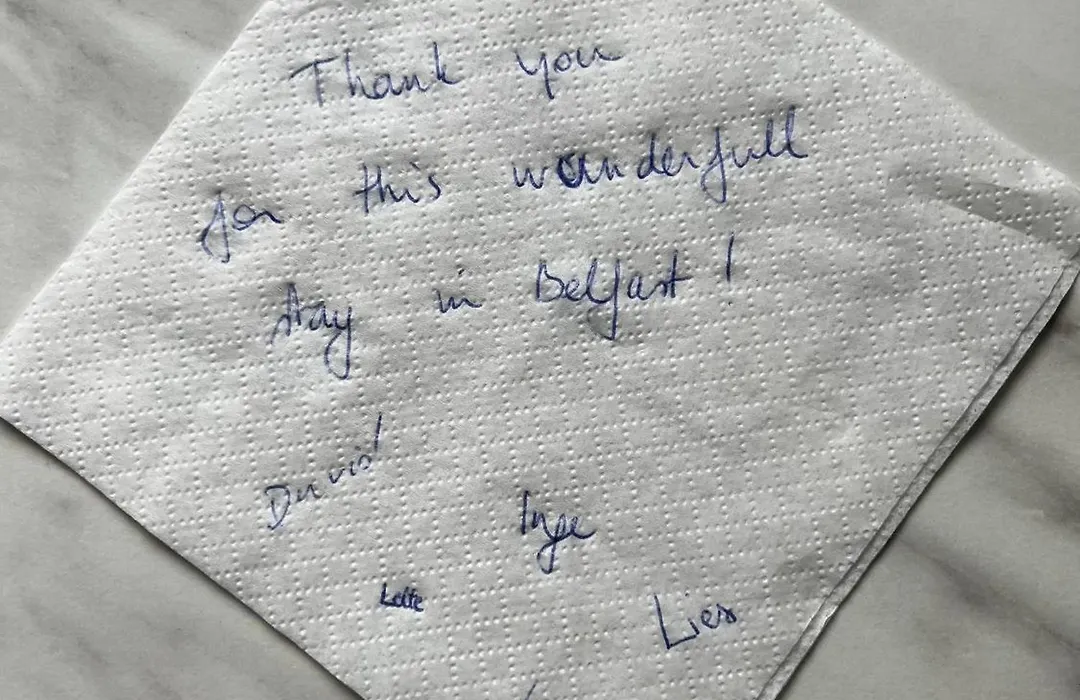 Thank you
for this wonderfull
stay in Belfast!
David
Inge
Lotte
Lies